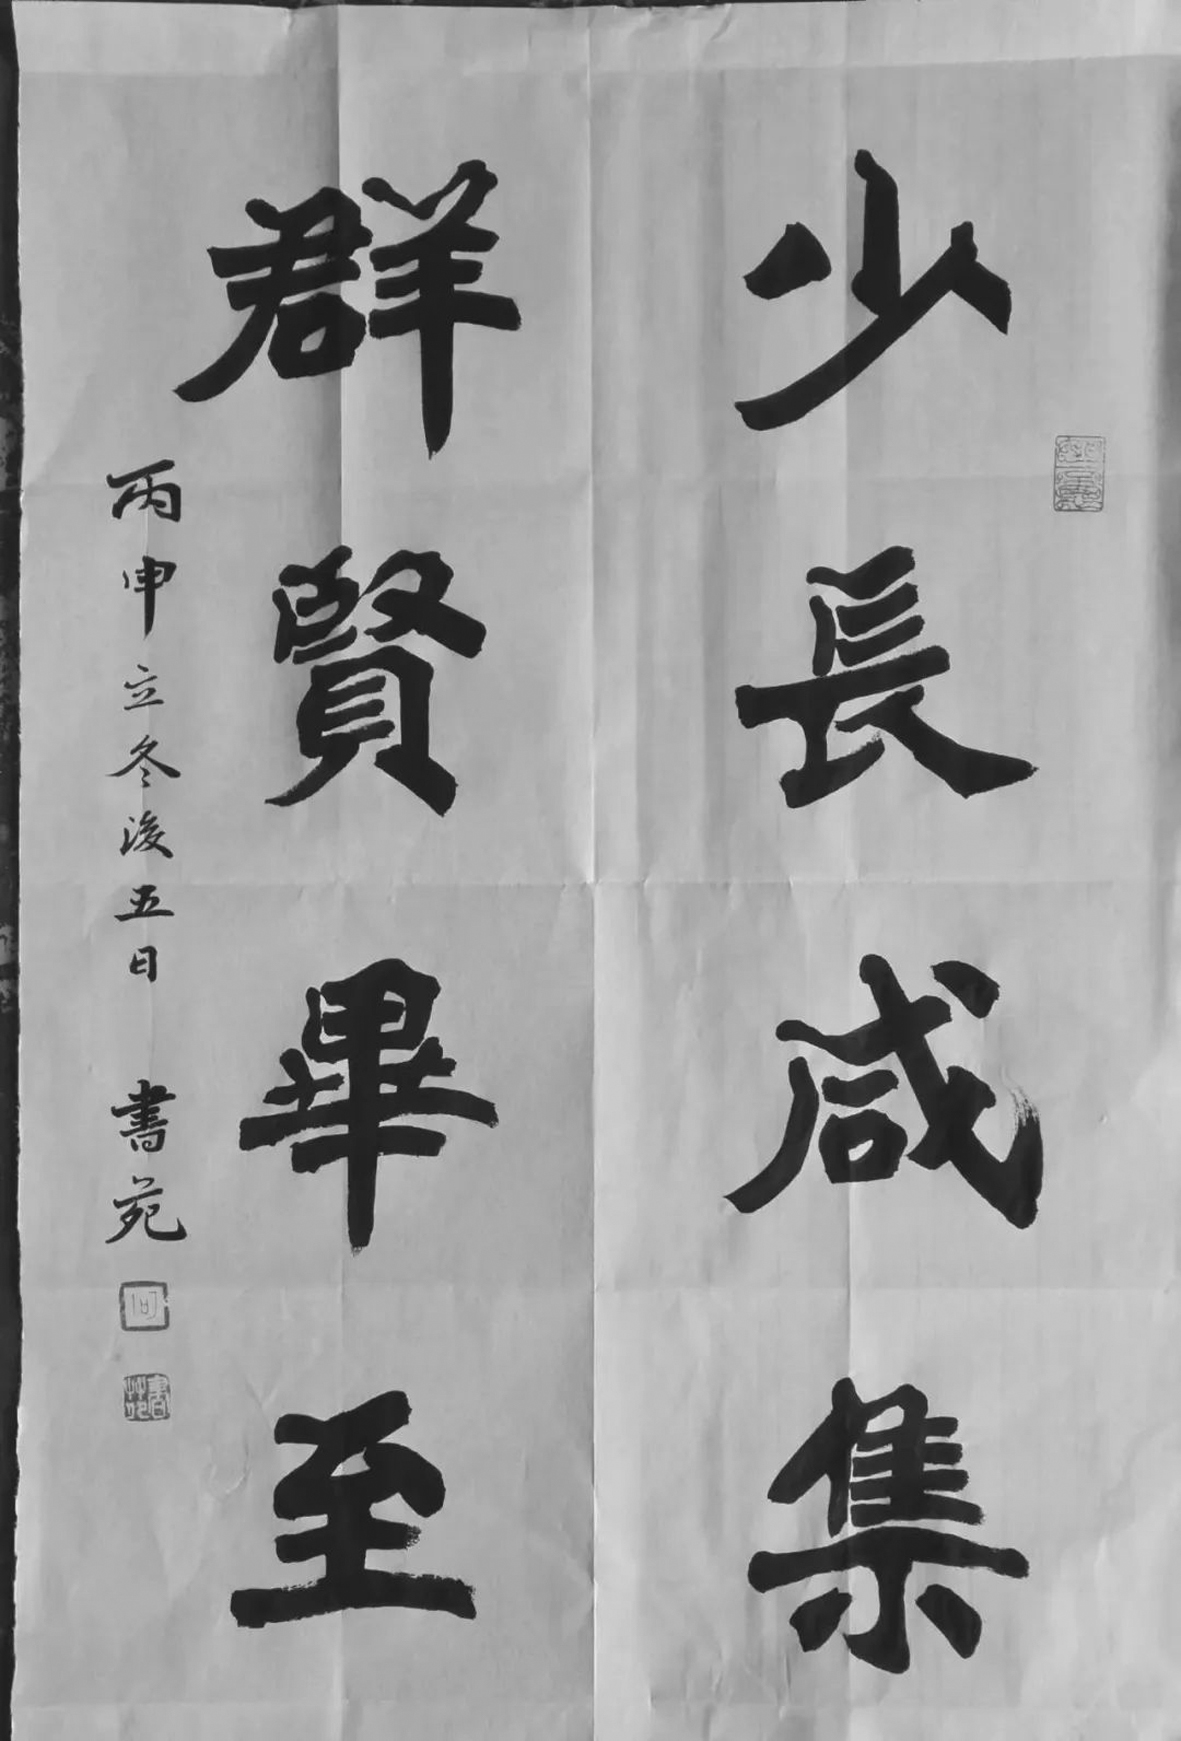 少長咸集
群賢畢至
丙申立冬後五日 書苑
何
書苑